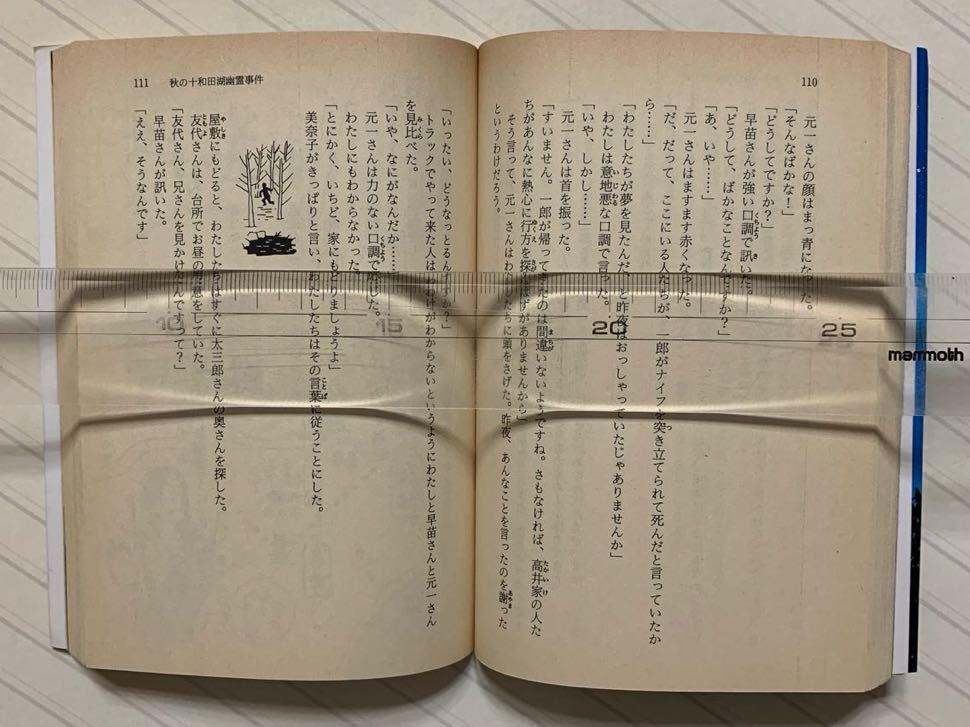 110
元一さんの顔はまっ青になった。
「そんなばかな！」
「どうしてですか？」
早苗さんが強い口調で訊いた。
「どうして、ばかなことなんですか？」
「あ、いや……」
元一さんはますます赤くなった。
「だ、だって、ここにいる人たちが、一郎がナイフを突き立てられて死んだと言っていたか
ら……」
「わたしたちが夢を見たんだ、と昨夜はおっしゃっていたじゃありませんか」
わたしは意地悪な口調で言った。
「いや、しかし……」
元一さんは首を振った。
「すいません。一郎が帰ってきたのは間違いないようですね。さもなければ、高井家の人た
ちがあんなに熱心に行方を探すはずがありませんから」
そう言って、元一さんはわたしたちに頭をさげた。昨夜、あんなことを言ったのを謝った
というわけだろう。
111 秋の十和田湖幽霊事件
「いったい、どうなっとるんですか？」
トラックでやって来た人はわけがわからないというようにわたしと早苗さんと元一さん
を見比べた。
「いや、なにがなんだか……」
元一さんは力のない口調で応じた。
わたしにもわからなかった。
「とにかく、いちど、家にもどりましょうよ」
美奈子がきっぱりと言い、わたしたちはその言葉に従うことにした。
屋敷にもどると、わたしたちはすぐに太三郎さんの奥さんを探した。
友代さんは、台所でお昼の用意をしていた。
「友代さん、兄さんを見かけたんですって？」
早苗さんが訊いた。
「ええ、そうなんです」
10
15
20
25
mammoth